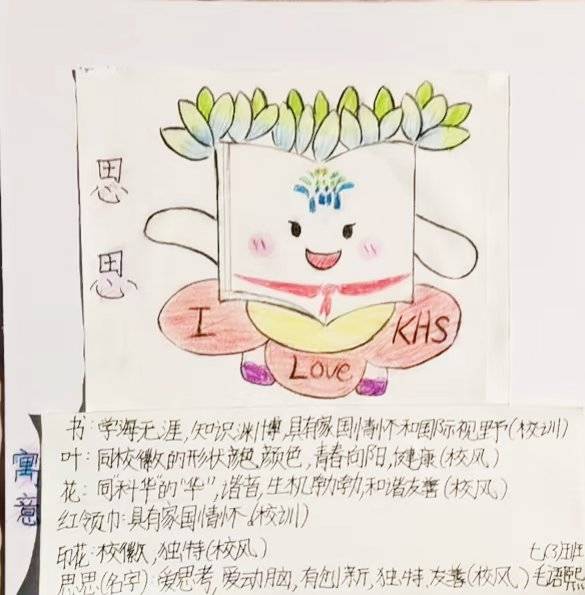 思
思
I
Love
KHS
寓意
书:学海无涯,知识渊博,具有家国情怀和国际视野(校训)
叶:同校徽的形状颜色,颜色,青春向阳,健康(校风)
花:同科华的“华”,谐音,生机勃勃,和谐友善(校风)
红领巾:具有家国情怀(校训)
印花:校徽,独特(校风)
七(3)班
思思(名字):爱思考,爱动脑,有创新,独特,友善(校风)
毛语熙